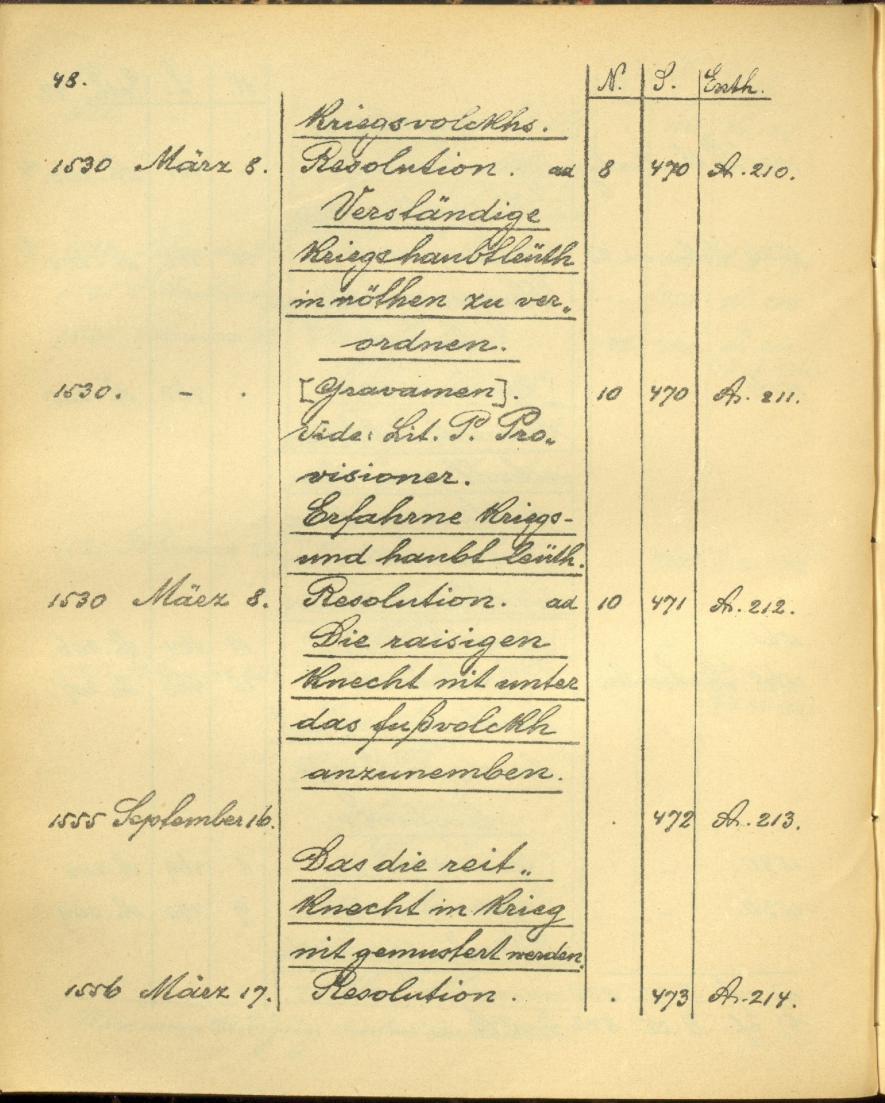 48. N. S. Enth.
Kriegsvolckhs.
1530 März 8. Resolution. ad 8 470 A. 210.
Verständige
Kriegshaubtleüth
in nöthen zu ver„
ordnen.
1530. - . [Gravamen]. 10 470 A. 211.
Vide: Lit. P. Pro„
visioner.
Erfahrne Kriegs-
und haubt leüth.
1530 März 8. Resolution. ad 10 471 A. 212.
Die raisigen
Knecht nit unter
das fußvolckh
anzunemben.
1555 September 16. . 472 A. 213.
Das die reit„
Knecht in Krieg
nit gemustert werden.
1556 März 17. Resolution. . 473 A. 214.